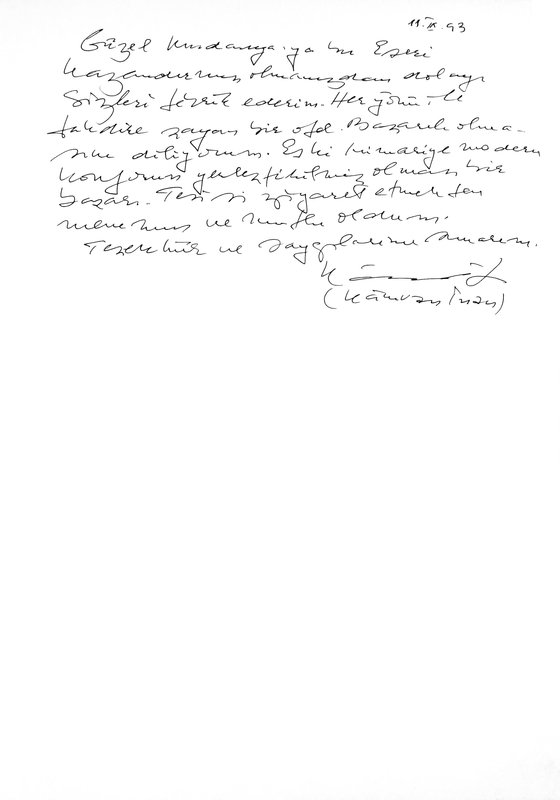 11.IX.93
Güzel Mudanya'ya bu Eseri
kazandırmış olmanızdan dolayı
Sizleri tebrik ederim. Her yönü ile
takdire şayan bir otel. Başarılı olma-
sını diliyorum. Eski mimariye modern
konforun yerleştirilmiş olması bir
başarı. Tesisi ziyaret etmekten
memnun ve mutlu oldum.
Teşekkür ve saygılarımı sunarım.
(Kâmran İnan)